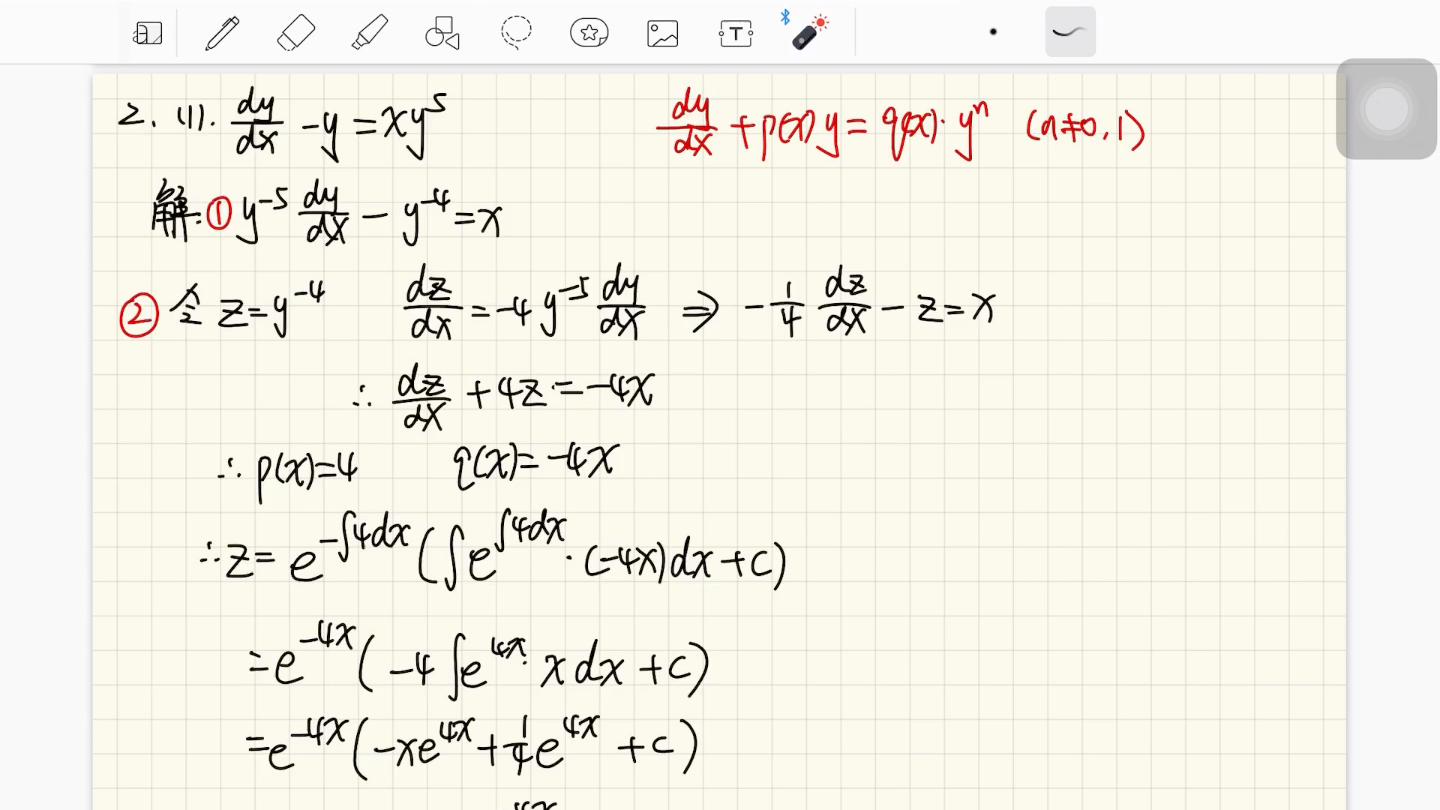 2. (1). dy/dx - y = xy⁵
dy/dx + p(x)y = q(x)·yⁿ (n≠0,1)
解: ① y⁻⁵ dy/dx - y⁻⁴ = x
② 令 z = y⁻⁴ dz/dx = -4y⁻⁵ dy/dx ⇒ -1/4 dz/dx - z = x
∴ dz/dx + 4z = -4x
∴ p(x)=4 q(x)= -4x
∴ z = e^(-∫4dx) (∫e^(∫4dx)·(-4x)dx + c)
= e^(-4x) (-4∫e^(4x)·x dx + c)
= e^(-4x) (-xe^(4x) + 1/4 e^(4x) + c)